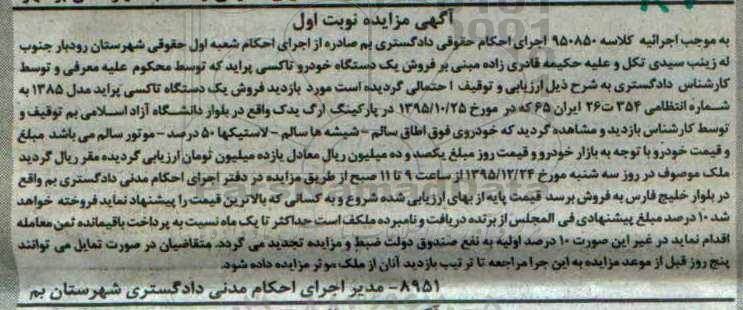 آگهی مزایده نوبت اول
به موجب اجرائیه کلاسه ۹۵۰۸۵۰ اجرای احکام حقوقی دادگستری بم صادره از اجرای احکام شعبه اول حقوقی شهرستان رودبار جنوب
له زینب سیدی تکل و علیه حکیمه قادری زاده مبنی بر فروش یک دستگاه خودرو تاکسی پراید که توسط محکوم علیه معرفی و توسط
کارشناس دادگستری به شرح ذیل ارزیابی و توقیف احتمالی گردیده است مورد بازدید فروش یک دستگاه تاکسی پراید مدل ۱۳۸۵ به
شماره انتظامی ۳۵۴ ت۲۶ ایران ۶۵ که در مورخ ۱۳۹۵/۱۰/۲۵ در پارکینگ ارگ یدک واقع در بلوار دانشگاه آزاد اسلامی بم توقیف و
توسط کارشناس بازدید و مشاهده گردید که خودروی فوق اطاق سالم - شیشه ها سالم - لاستیکها ۵۰ درصد - موتور سالم می باشد مبلغ
و قیمت خودرو با توجه به بازار خودرو و قیمت روز مبلغ یکصد و ده میلیون ریال معادل یازده میلیون تومان ارزیابی گردیده مقر ریال گردید
ملک موصوف در روز سه شنبه مورخ ۱۳۹۵/۱۲/۲۴ از ساعت ۹ تا ۱۱ صبح از طریق مزایده در دفتر اجرای احکام مدنی دادگستری بم واقع
در بلوار خلیج فارس به فروش برسد قیمت پایه از بهای ارزیابی شده شروع و به کسانی که بالاترین قیمت را پیشنهاد نماید فروخته خواهد
شد ۱۰ درصد مبلغ پیشنهادی فی المجلس از برنده دریافت و نامبرده ملکف است حداکثر تا یک ماه نسبت به پرداخت باقیمانده ثمن معامله
اقدام نماید در غیر این صورت ۱۰ درصد اولیه به نفع صندوق دولت ضبط و مزایده تجدید می گردد. متقاضیان در صورت تمایل می توانند
پنج روز قبل از موعد مزایده به این جرا مراجعه تا ترتیب بازدید آنان از ملک موثر مزایده داده شود.
۸۹۵۱- مدیر اجرای احکام مدنی دادگستری شهرستان بم